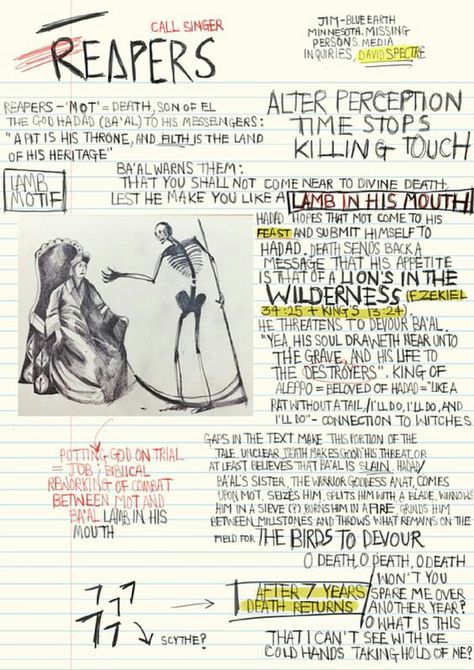 CALL SINGER
REAPERS
JIM - BLUE EARTH
MINNESOTA. MISSING
PERSONS. MEDIA
INQUIRIES, DAVID SPECTRE
REAPERS - 'MOT' = DEATH, SON OF EL
THE GOD HADAD (BA'AL) TO HIS MESSENGERS:
"A PIT IS HIS THRONE, AND FILTH IS THE LAND
OF HIS HERITAGE"
ALTER PERCEPTION
TIME STOPS
KILLING TOUCH
LAMB
MOTIF
BA'AL WARNS THEM:
THAT YOU SHALL NOT COME NEAR TO DIVINE DEATH,
LEST HE MAKE YOU LIKE A LAMB IN HIS MOUTH
HADAD HOPES THAT MOT COME TO HIS
FEAST AND SUBMIT HIMSELF TO
HADAD. DEATH SENDS BACK A
MESSAGE THAT HIS APPETITE
IS THAT OF A LION'S IN THE
WILDERNESS (EZEKIEL
34:25 + KINGS 13:24).
HE THREATENS TO DEVOUR BA'AL.
"YEA, HIS SOUL DRAWETH NEAR UNTO
THE GRAVE, AND HIS LIFE TO
THE DESTROYERS". KING OF
ALEPPO = BELOVED OF HADAD = "LIKE A
RAT WITHOUT A TAIL / I'LL DO, I'LL DO, AND
I'LL DO" - CONNECTION TO WITCHES
PUTTING GOD ON TRIAL
= JOB; BIBLICAL
REWORKING OF COMBAT
BETWEEN MOT AND
BA'AL LAMB IN HIS
MOUTH
GAPS IN THE TEXT MAKE THIS PORTION OF THE
TALE UNCLEAR. DEATH MAKES GOOD HIS THREAT, OR
AT LEAST BELIEVES THAT BA'AL IS SLAIN. HADAD/
BA'AL'S SISTER, THE WARRIOR GODDESS ANAT, COMES
UPON MOT, SEIZES HIM, SPLITS HIM WITH A BLADE, WINNOWS
HIM IN A SIEVE (?) BURNS HIM IN A FIRE, GRINDS HIM
BETWEEN MILLSTONES AND THROWS WHAT REMAINS ON THE
FIELD FOR THE BIRDS TO DEVOUR
7 7
7 7
SCYTHE?
AFTER 7 YEARS
DEATH RETURNS
O DEATH, O DEATH, O DEATH
WON'T YOU
SPARE ME OVER
ANOTHER YEAR?
O WHAT IS THIS
THAT I CAN'T SEE WITH ICE
COLD HANDS TAKING HOLD OF ME?